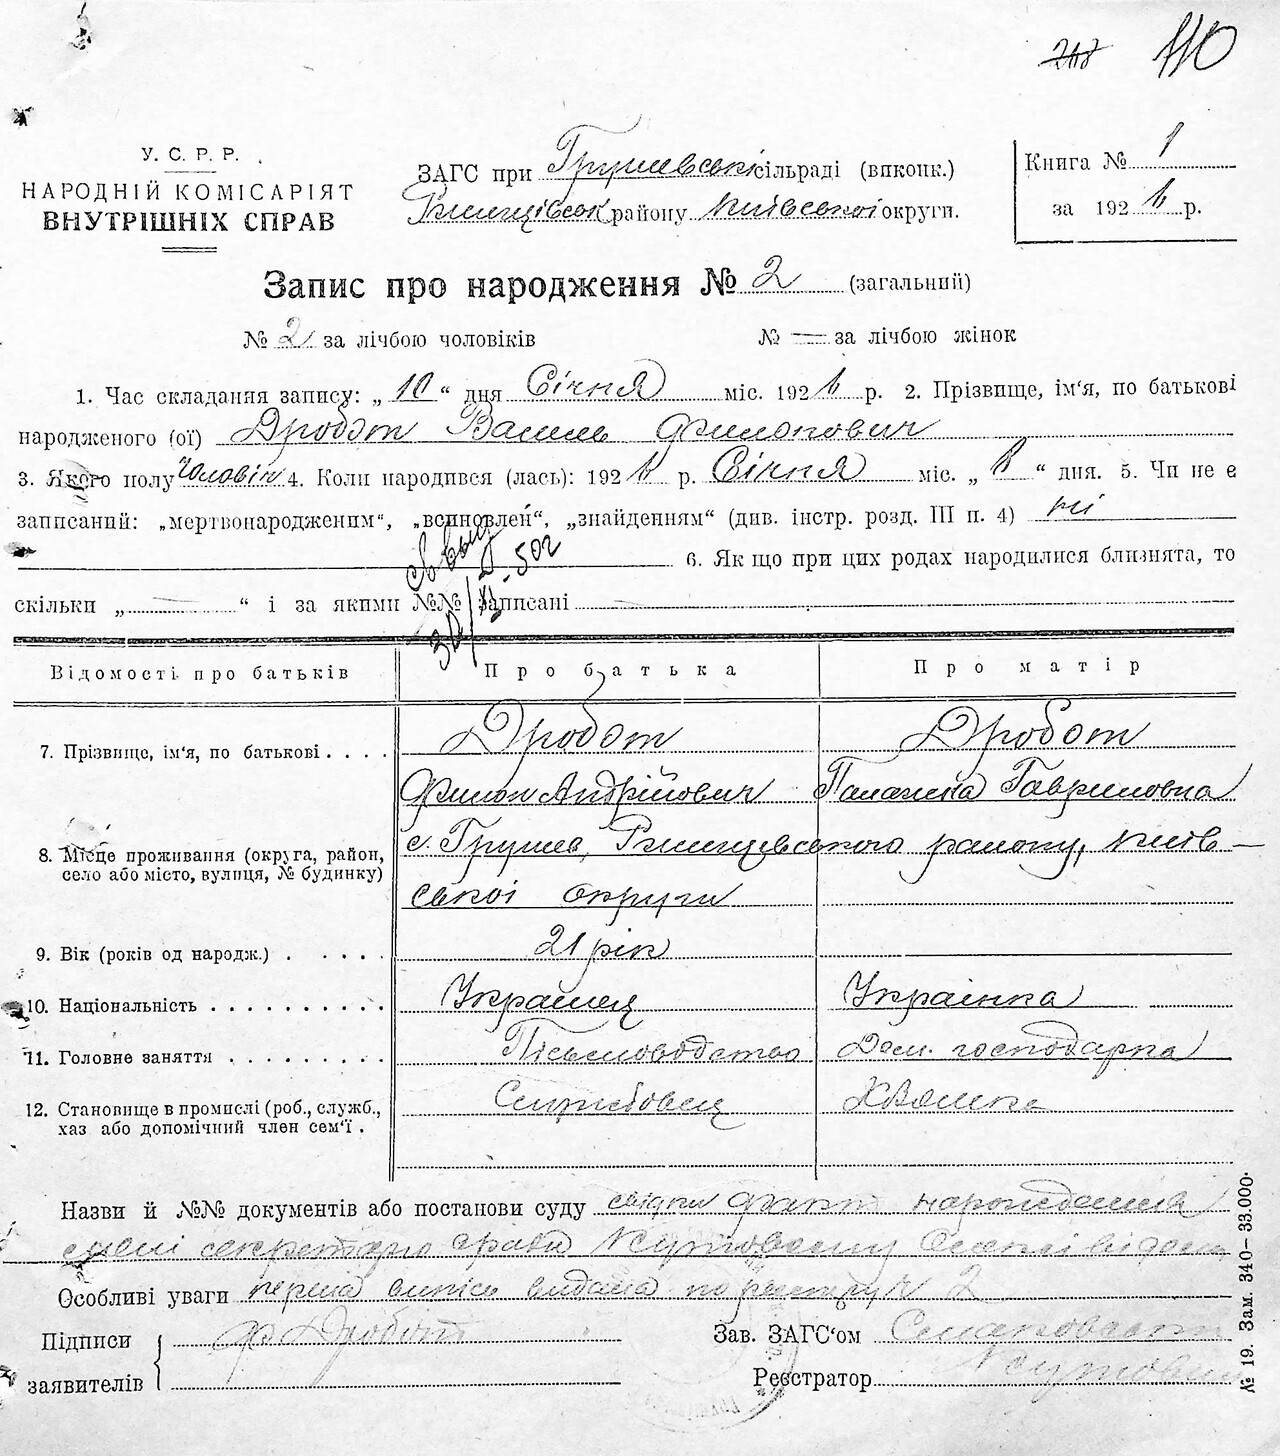 110
У. С. Р. Р.
НАРОДНІЙ КОМІСАРІЯТ
ВНУТРІШНІХ СПРАВ
ЗАГС при Грушевській сільраді (впконк.)
Ржищівськ району Київської округи.
Книга № 1
за 192 6 р.
Запис про народження № 2 (загальний)
№ 2 за лічбою чоловіків № — за лічбою жінок
1. Час складання запису: „ 10 “ дня Січня міс. 192 6 р. 2. Прізвище, ім'я, по батькові
народженого (ої) Дробот Василь Филонович
3. Якого полу Чоловік 4. Коли народився (лась): 192 6 р. Січня міс. „ 6 “ дня. 5. Чи не є
записаний: „мертвонародженим“, „всиновлей“, „знайденям“ (див. інстр. розд. III п. 4) ні
6. Як що при цих родах народилися близнята, то
скільки „ — “ і за якими №№ записані
Відомості про батьків Про батька Про матір
7. Прізвище, ім'я, по батькові . . . . Дробот Дробот
Филон Андрійович Палажка Гавриловна
8. Місце проживання (округа, район, село або місто, вулиця, № будинку) с. Грушев, Ржищевського району, Київ—
ської округи
9. Вік (років од народж.) . . . . . 21 рік
10. Національність . . . . . . . . . . Українец Українка
11. Головне заняття . . . . . . . . . Письмоводство Дом. господарка
12. Становище в промислі (роб., служб., хаз або допомічний член сем'ї . Службовец
Назви й №№ документів або постанови суду
Особливі уваги перша випись видана по реєстру № 2
Підписи
заявителів Ф Дробот
Зав. ЗАГС'ом
Реєстратор
№ 19. Зам. 340—33.000.